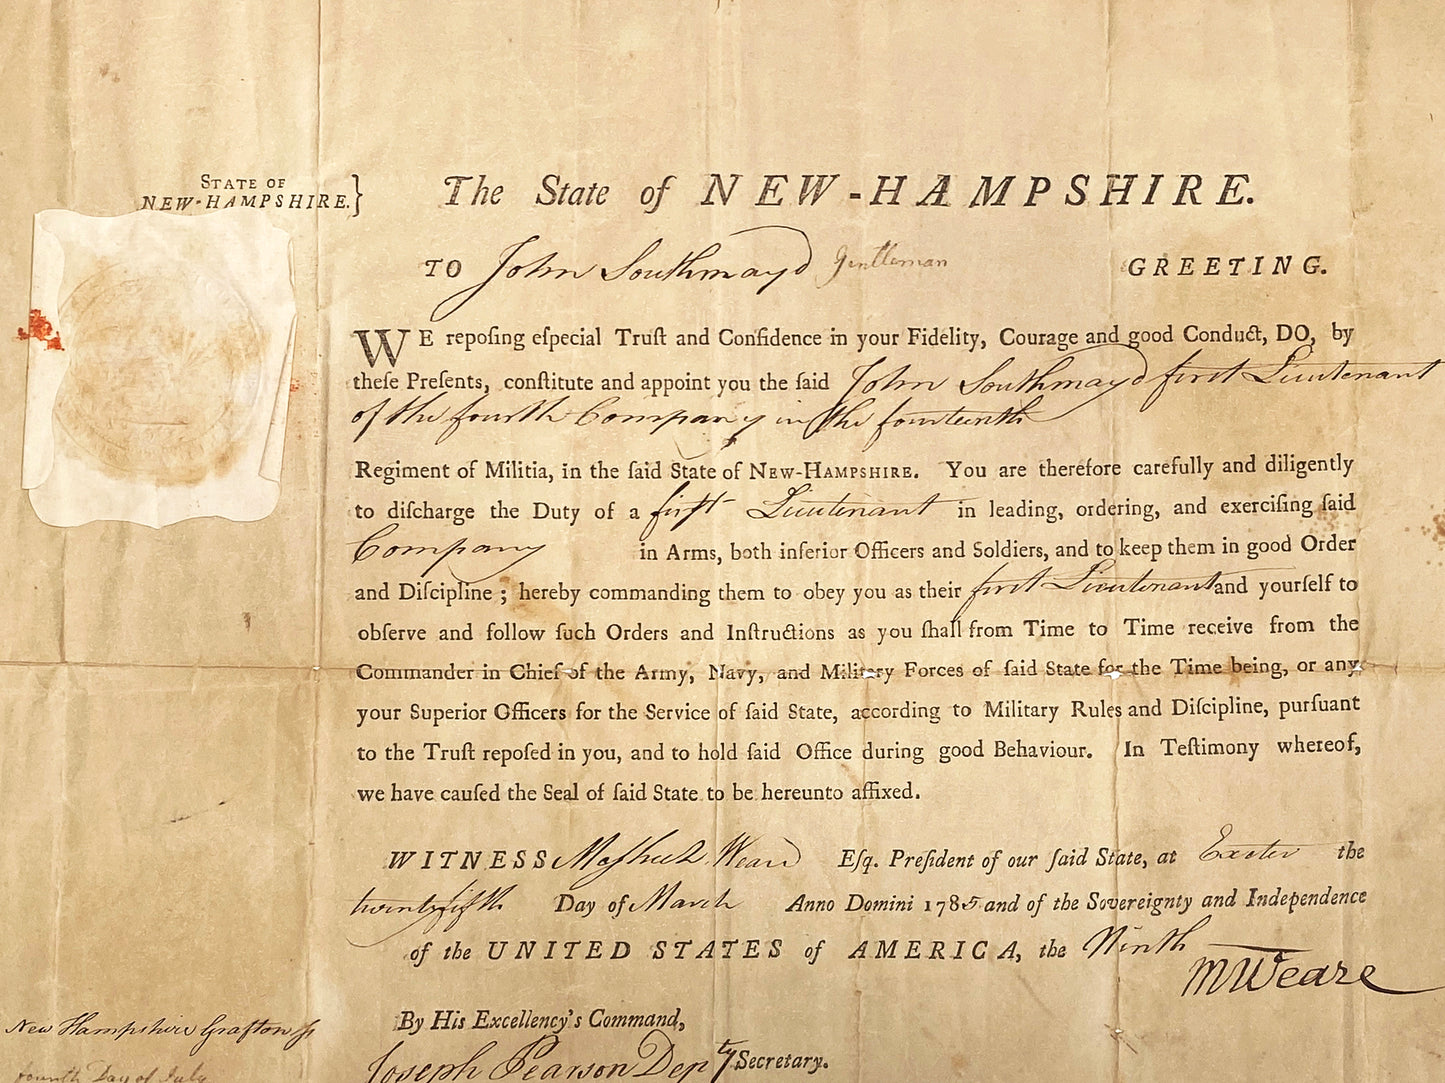 STATE OF
NEW-HAMPSHIRE.}
The State of NEW-HAMPSHIRE.
TO John Southmayd Gentleman GREETING.
WE repoſing eſpecial Truſt and Confidence in your Fidelity, Courage and good Conduct, DO, by
theſe Preſents, conſtitute and appoint you the ſaid John Southmayd first Lieutenant
of the fourth Company in the fourteenth
Regiment of Militia, in the ſaid State of NEW-HAMPSHIRE. You are therefore carefully and diligently
to diſcharge the Duty of a firſt Lieutenant in leading, ordering, and exerciſing ſaid
Company in Arms, both inferior Officers and Soldiers, and to keep them in good Order
and Diſcipline ; hereby commanding them to obey you as their first Lieutenant and yourſelf to
obſerve and follow ſuch Orders and Inſtructions as you ſhall from Time to Time receive from the
Commander in Chief of the Army, Navy, and Military Forces of ſaid State for the Time being, or any
your Superior Officers for the Service of ſaid State, according to Military Rules and Diſcipline, purſuant
to the Truſt repoſed in you, and to hold ſaid Office during good Behaviour. In Teſtimony whereof,
we have cauſed the Seal of ſaid State to be hereunto affixed.
WITNESS Meſhech Weare Eſq. Preſident of our ſaid State, at Exeter the
twenty fifth Day of March Anno Domini 1785 and of the Sovereignty and Independence
of the UNITED STATES of AMERICA, the Ninth
M Weare
By His Excellency's Command,
Joseph Pearson Depty Secretary.
New Hampshire Grafton ſs
fourth Day of July